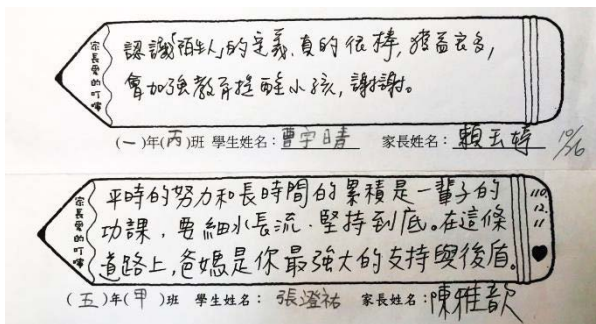 家長愛的叮嚀
認識「陌生人」的定義,真的很棒,獲益良多,
會加強教育提醒小孩,謝謝。
(一)年(丙)班 學生姓名:曹宇晴 家長姓名:賴玉婷 10/26
家長愛的叮嚀
平時的努力和長時間的累積是一輩子的
功課,要細水長流、堅持到底。在這條
道路上,爸媽是你最強大的支持與後盾。
110.
12.
11
(五)年(甲)班 學生姓名:張澄祐 家長姓名:陳雅歆